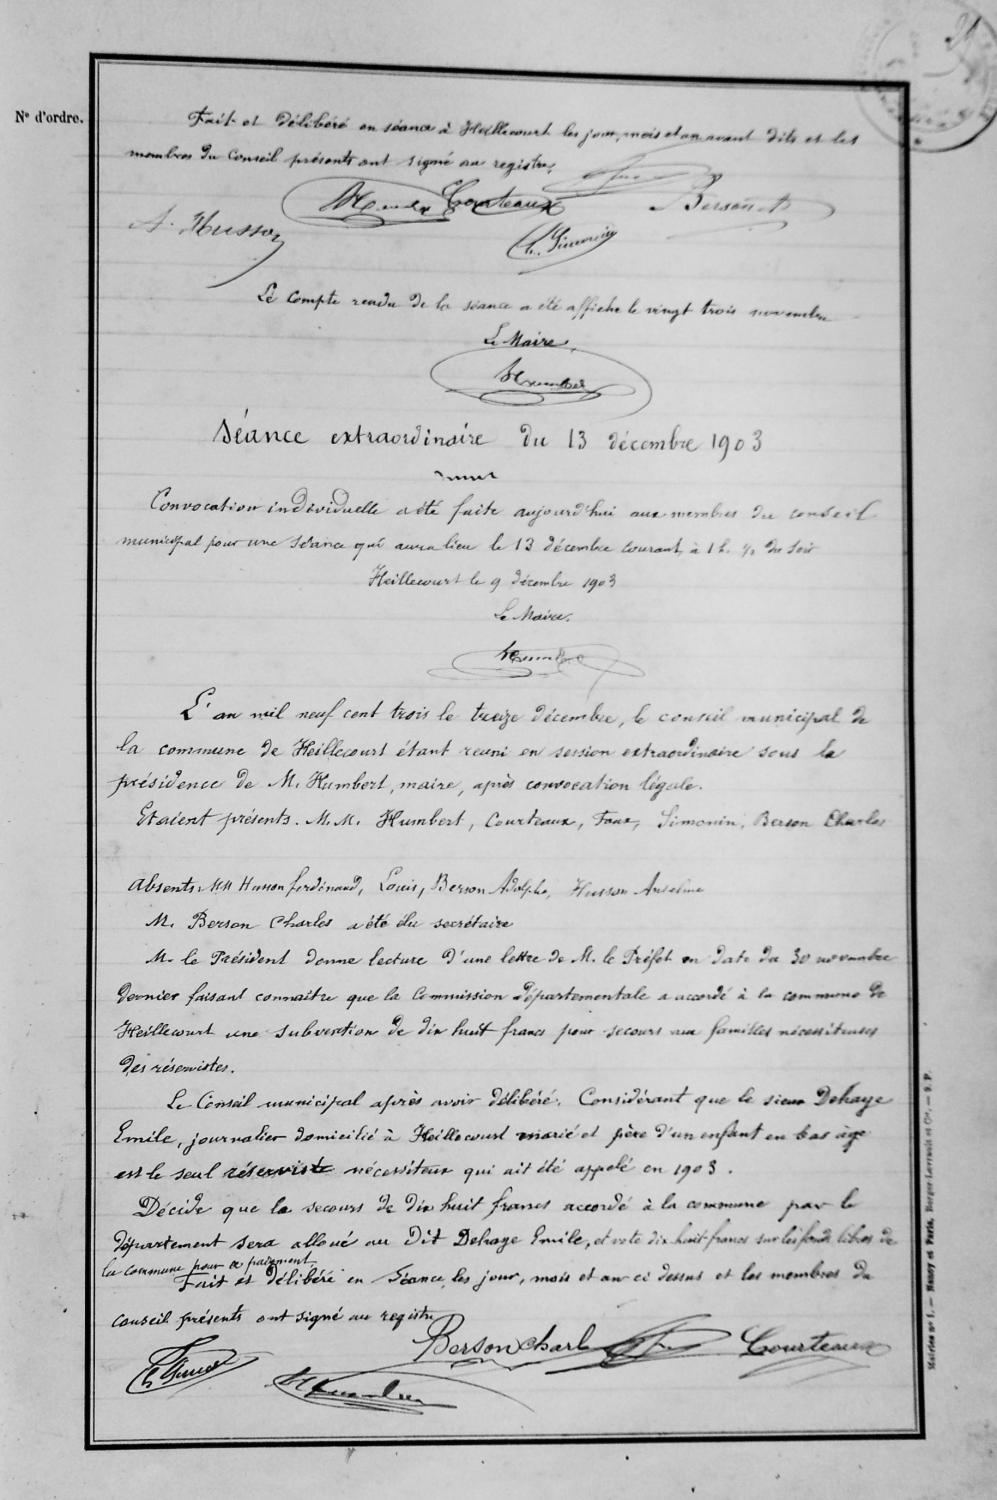 21
N° d'ordre.
Fait et délibéré en séance à Heillecourt les jour, mois et an avant dits et les
membres du Conseil présents ont signé au registre,
Courteaux Berson A
A. Husson
Ch. Simonin
Le compte rendu de la séance a été affiché le vingt trois novembre
Le Maire,
Humbert
Séance extraordinaire du 13 décembre 1903
Convocation individuelle a été faite aujourd'hui aux membres du conseil
municipal pour une séance qui aura lieu le 13 décembre courant, à 1 h. ½ du soir
Heillecourt le 9 décembre 1903
Le Maire.
Humbert
L'an mil neuf cent trois le treize décembre, le conseil municipal de
la commune de Heillecourt étant reuni en session extraordinaire sous la
présidence de M. Humbert, maire, après convocation légale.
Etaient présents. M.M. Humbert, Courteaux, Faux, Simonin, Berson Charles
Absents. MM Husson ferdinand, Louis, Berson Adolphe, Husson Anselme
M. Berson Charles a été élu secrétaire
M. le Président donne lecture d'une lettre de M. le Préfet en date du 30 novembre
dernier faisant connaitre que la Commission départementale a accordé à la commune de
Heillecourt une subvention de dix huit francs pour secours aux familles nécessiteuses
des réservistes.
Le Conseil municipal après avoir délibéré. Considérant que le sieur Dehaye
Emile, journalier domicilié à Heillecourt marié et père d'un enfant en bas âge
est le seul réserviste nécessiteux qui ait été appelé en 1903.
Décide que le secours de dix huit francs accordé à la commune par le
département sera alloué au dit Dehaye Emile, et vote dix huit francs sur les fonds libres de
la commune pour ce paiement.
Fait et délibéré en Séance, les jour, mois et an ci dessus et les membres du
conseil présents ont signé au registre
Berson Charl Courteaux
Humbert
Mairies n° 1. — Nancy et Paris, Berger-Levrault et Cie. — S. P.